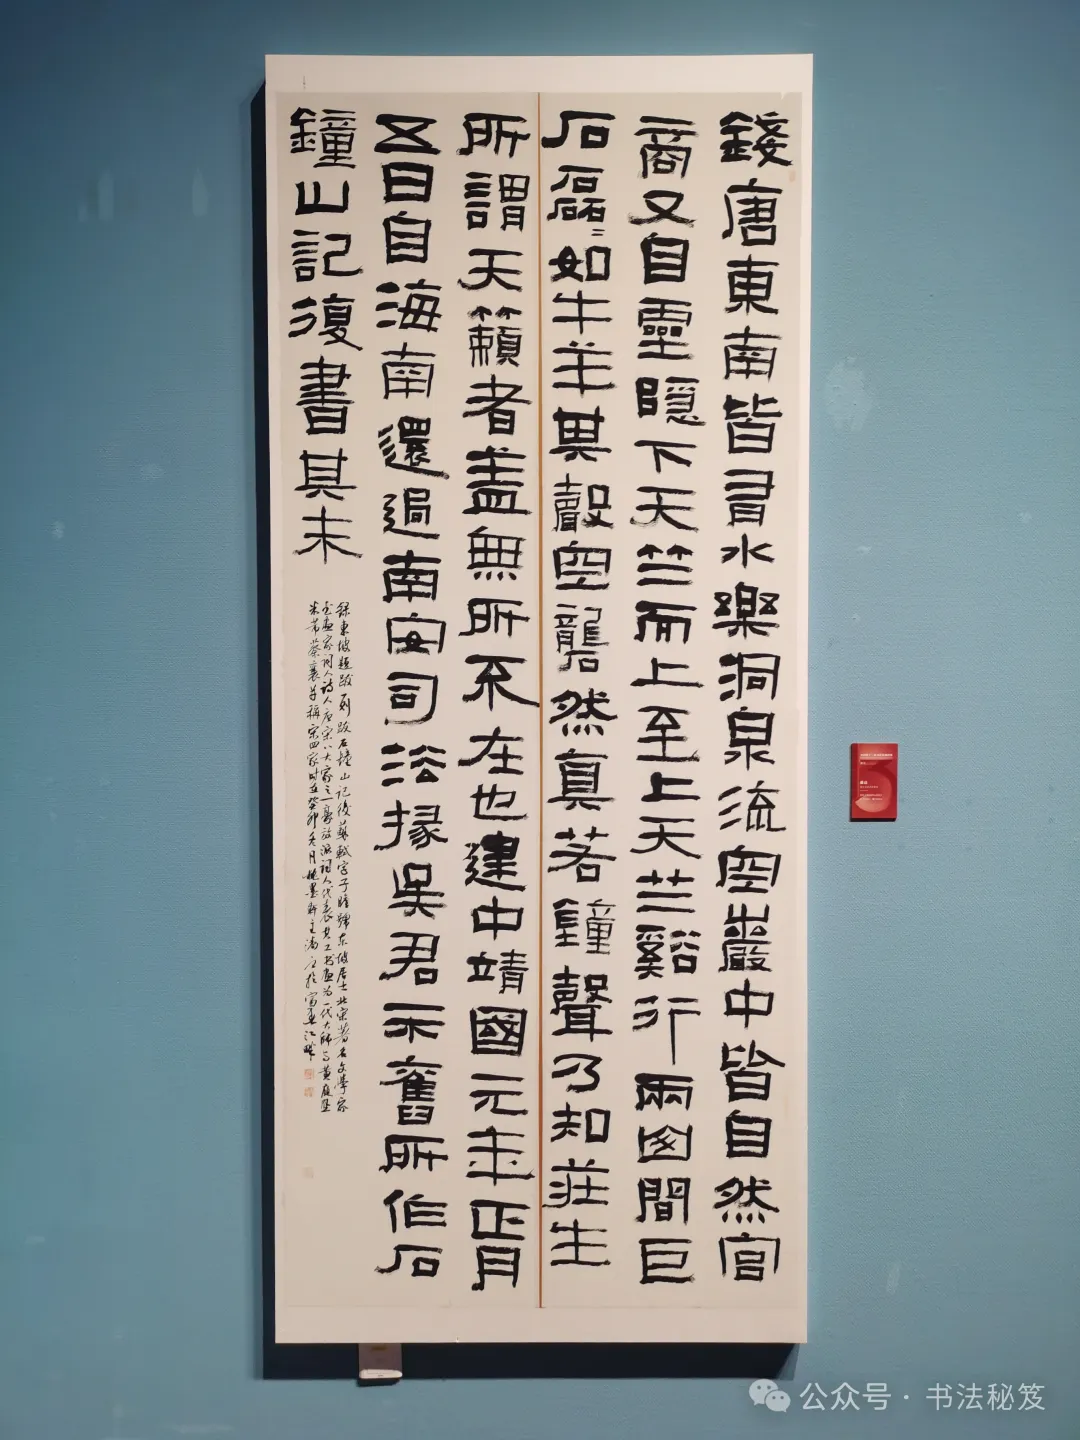 錢唐東南皆有水樂洞泉流空巖中皆自然宮
商又自靈隱下天竺而上至上天竺谿行兩山間巨
石磊磊如牛羊其聲空礱然真若鐘聲乃知莊生
所謂天籟者盖無所不在也建中靖國元年正月
五日自海南還過南安司法掾吳君示舊所作石
鐘山記復書其末
錄東坡題跋列跋石鐘山記後蘇軾字子瞻號東坡居士北宋著名文學家
書画家詞人詩人唐宋八大家之一豪放派詞人代表其工书画为一代大師与黄庭堅
米芾蔡襄并稱宋四家時在癸卯
公众号·书法秘笈